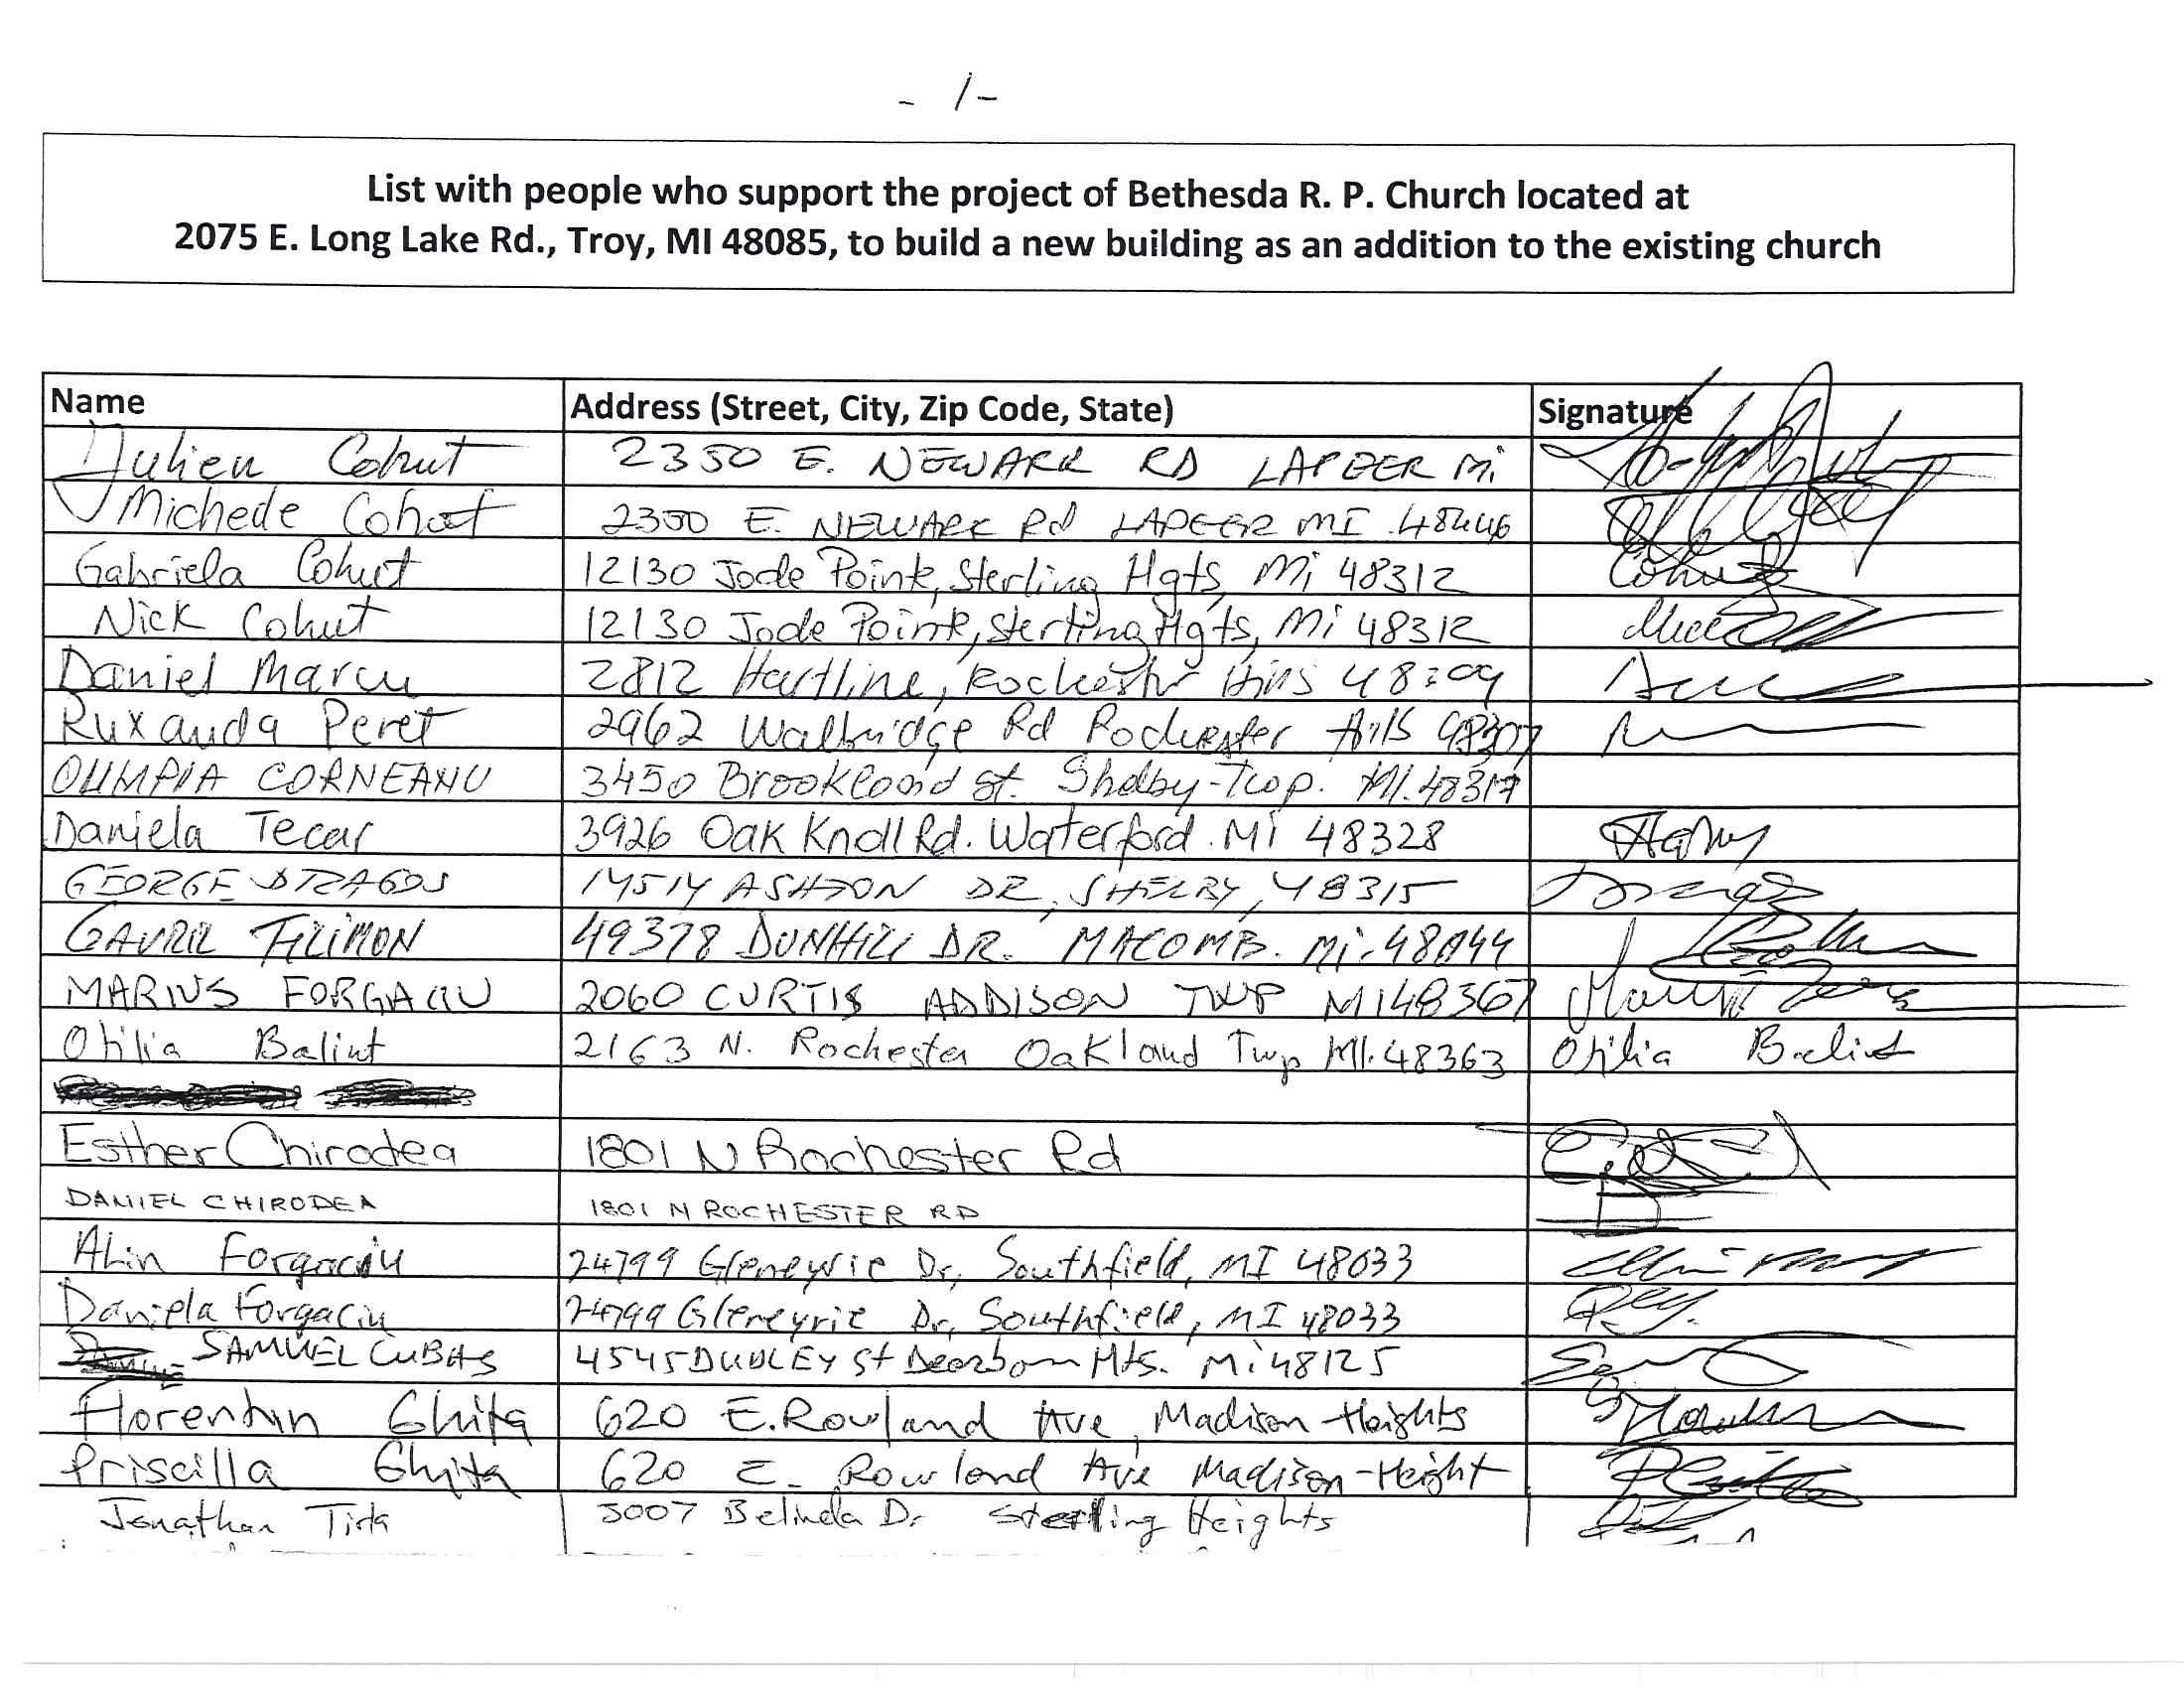 - 1 -
List with people who support the project of Bethesda R. P. Church located at
2075 E. Long Lake Rd., Troy, MI 48085, to build a new building as an addition to the existing church
Name Address (Street, City, Zip Code, State) Signature
Julien Cohut 2350 E. NEWARK RD LAPEER Mi
Michede Cohut 2350 E. NEWARK Rd LAPEER MI 48446
Gabriela Cohut 12130 Jode Pointe, Sterling Hgts, Mi 48312 Cohut
Nick Cohut 12130 Jode Pointe, Sterling Hgts, Mi 48312
Daniel Marcu 2812 Hartline, Rochester Hills
Ruxauda Peret 2962 Walbridge Rd Rochester Hills 48307
OLIMPIA CORNEANU 3450 Brookload st. Shelby-Twp. MI. 48317
Daniela Tecar 3926 Oak Knoll Rd. Waterford. Mi 48328
GEORGE DRAGOS 14514 ASHTON DR, SHELBY, 48315
GAVRIL FILIMON 49378 DUNHILL DR. MACOMB. Mi. 48044
MARIUS FORGACIU 2060 CURTIS ADDISON TWP MI 48367
Otilia Balint 2163 N. Rochester Oakland Twp MI. 48363 Otilia Balint
Esther Chirodea 1801 N Rochester Rd
DANIEL CHIRODEA 1801 N ROCHESTER RD
Alin Forgaciu 24799 Gleneyrie Dr, Southfield, MI 48033
Daniela Forgaciu 24799 Gleneyrie Dr, Southfield, MI 48033
SAMUEL CUBAS 4545 DUDLEY St Dearborn Hts. Mi 48125
Florentin Ghita 620 E. Rowland Ave, Madison Heights
Priscilla Ghita 620 E. Rowland Ave Madison-Height
Jonathan Tirla 3007 Belinda Dr Sterling Heights